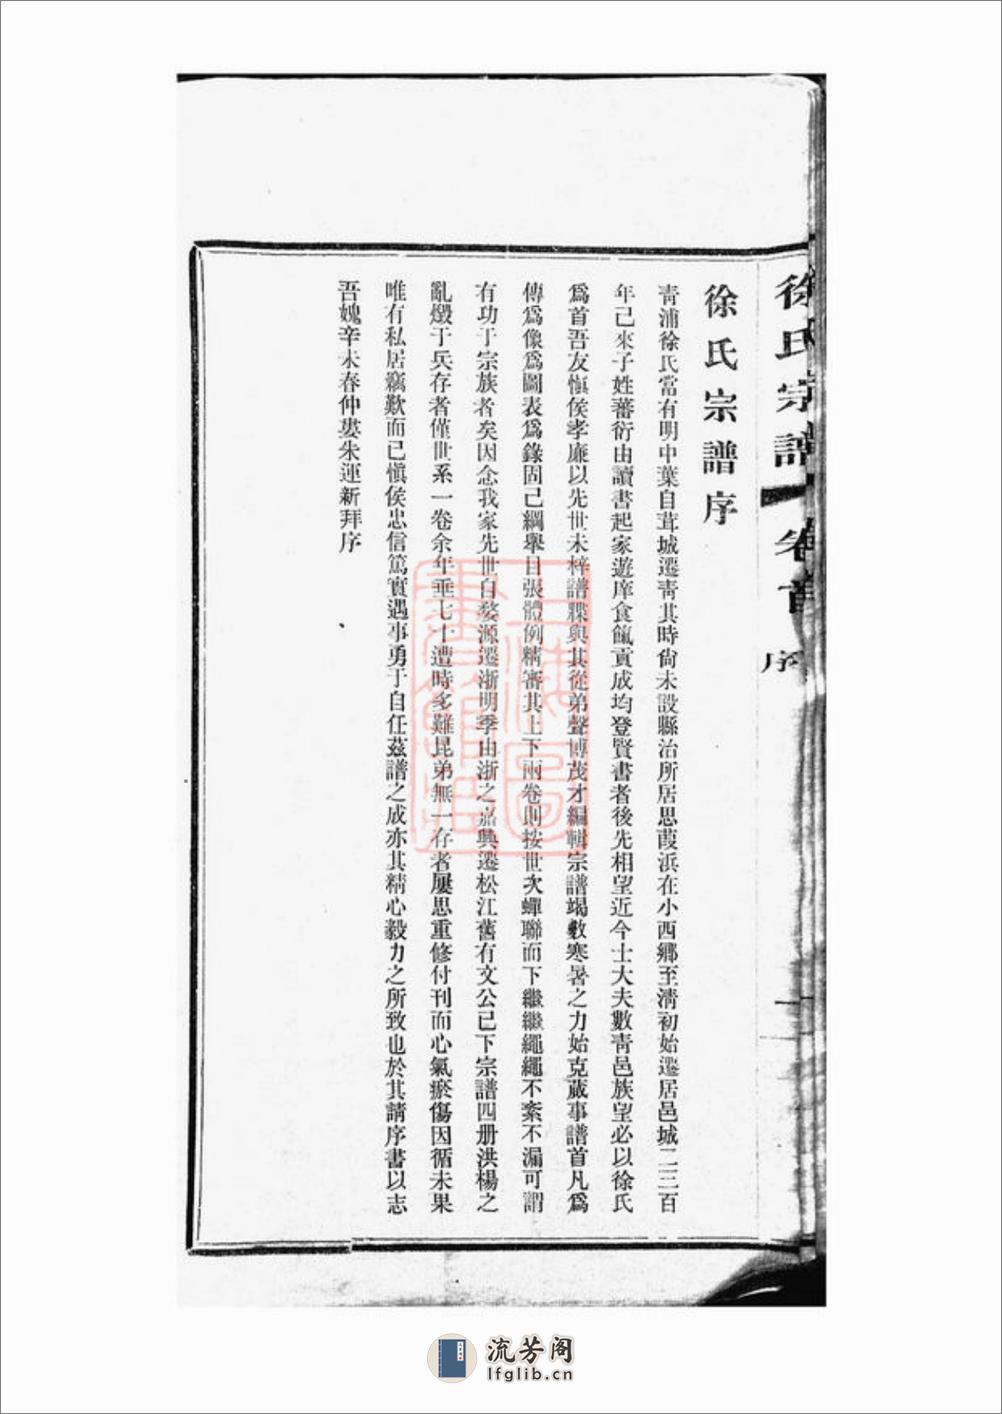 徐氏宗譜 卷首 序 一
徐氏宗譜序
靑浦徐氏當有明中葉自茸城遷靑其時尙未設縣治所居思葭浜在小西鄕至淸初始遷居邑城二三百
年已來子姓蕃衍由讀書起家遊庠食餼貢成均登賢書者後先相望近今士大夫數靑邑族望必以徐氏
爲首吾友愼侯孝廉以先世未梓譜牒與其從弟聲博茂才編輯宗譜竭數寒暑之力始克蕆事譜首凡爲
傳爲像爲圖表爲錄固已綱舉目張體例精審其上下兩卷則按世次蟬聯而下繼繼繩繩不紊不漏可謂
有功于宗族者矣因念我家先世自婺源遷浙明季由浙之嘉興遷松江舊有文公已下宗譜四册洪楊之
亂燬于兵存者僅世系一卷余年垂七十遭時多難昆弟無一存者屢思重修付刊而心氣瘀傷因循未果
唯有私居竊歎而已愼侯忠信篤實遇事勇于自任茲譜之成亦其精心毅力之所致也於其請序書以志
吾媿辛未春仲婁朱運新拜序
上海圖
書館藏
流芳阁
lfglib.cn